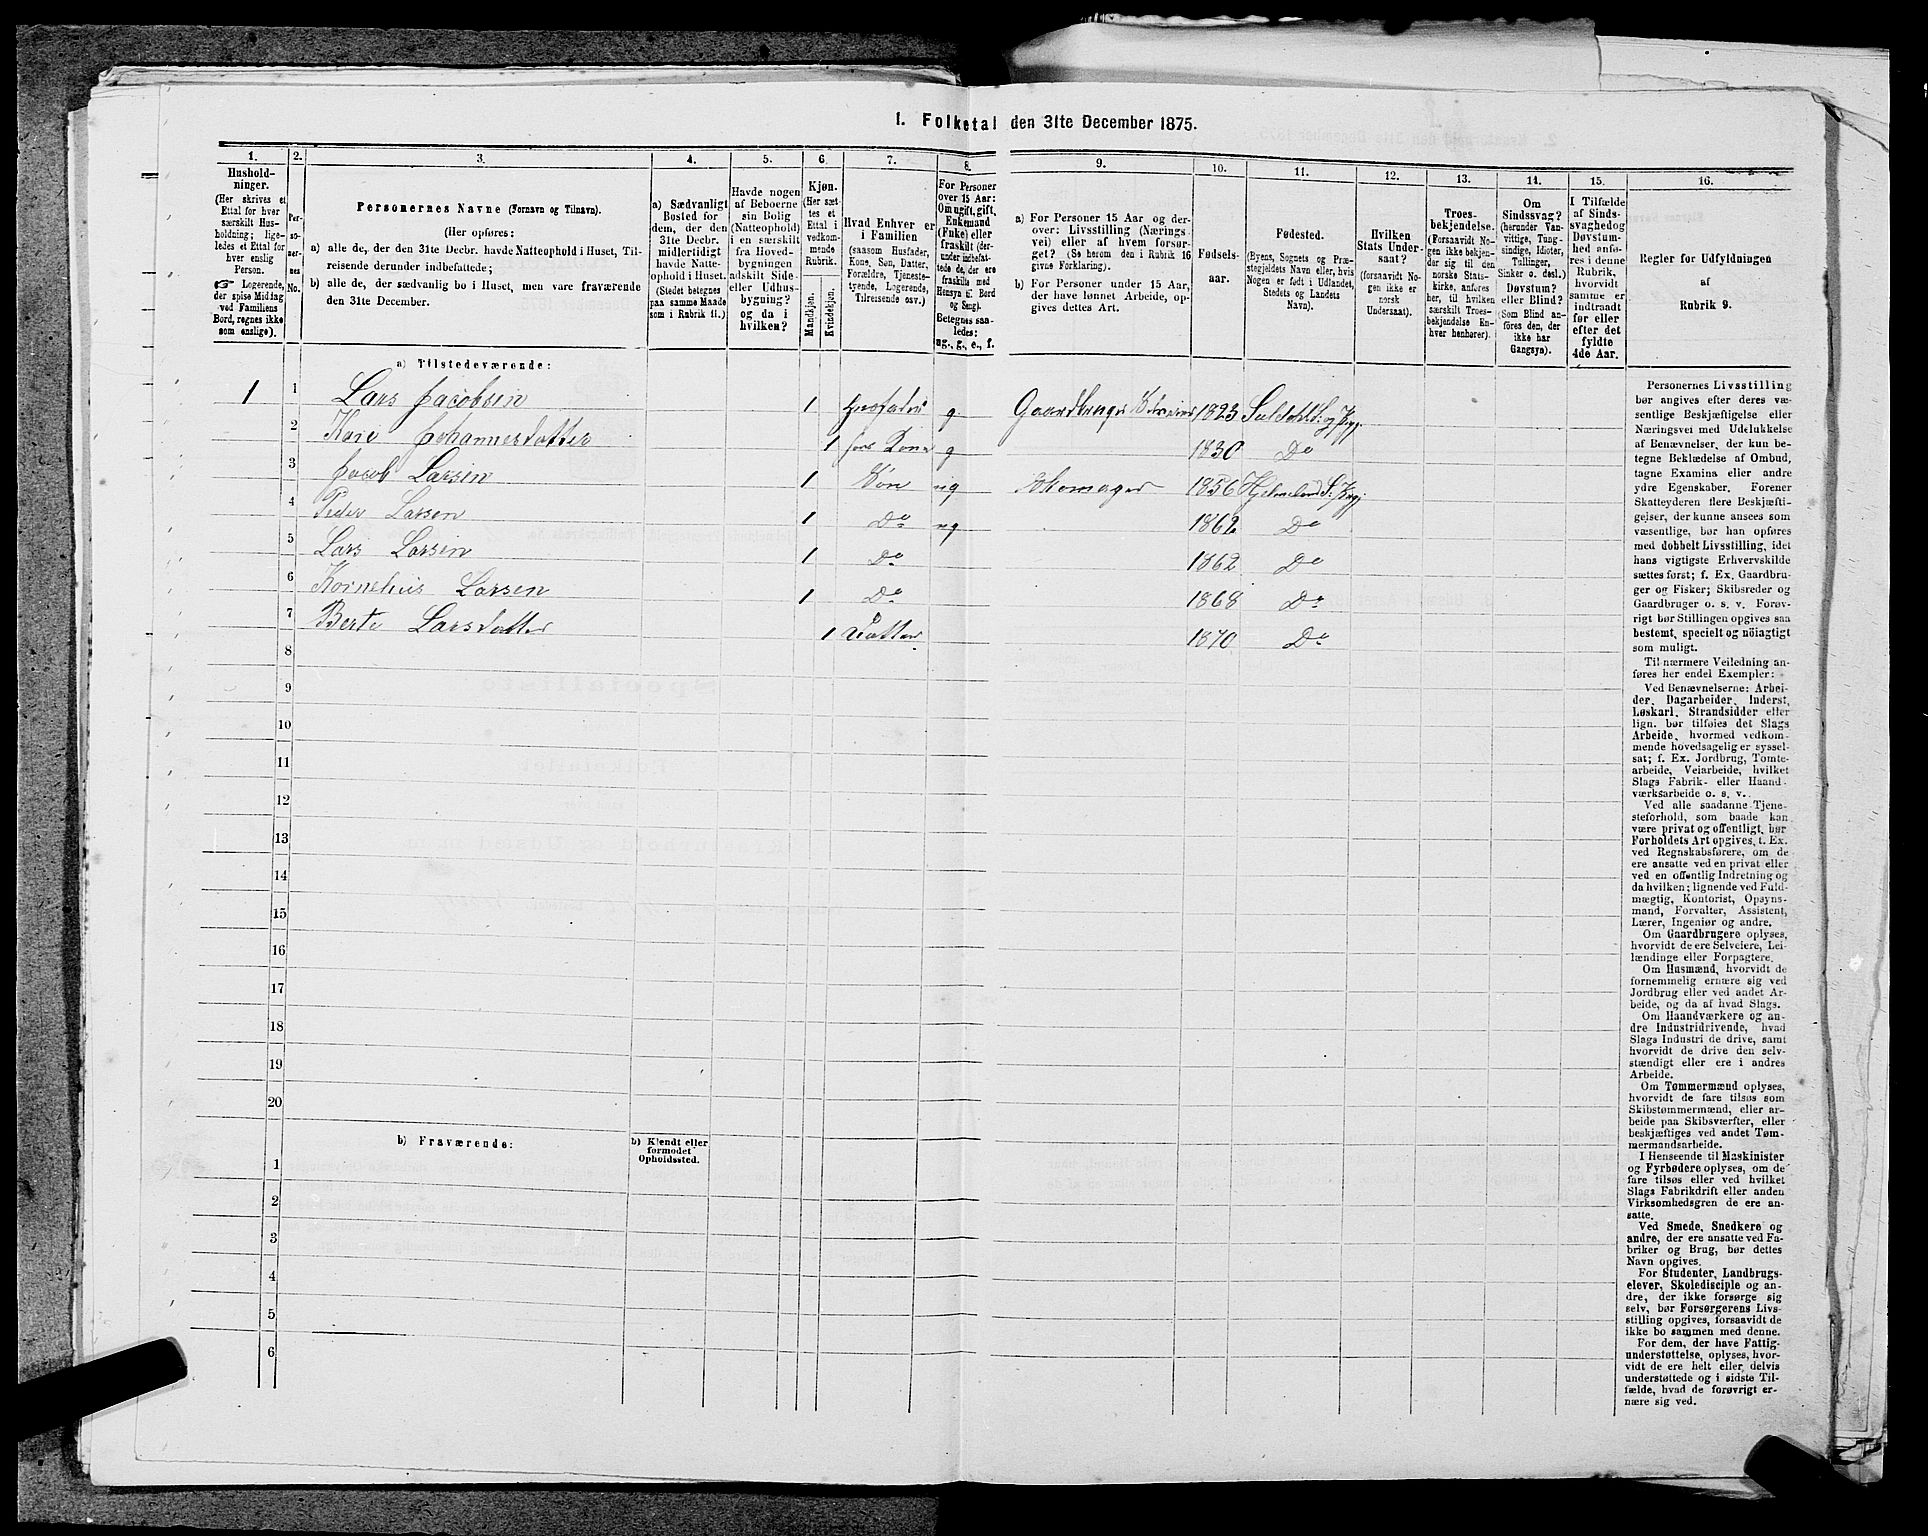 I. Folketal den 31te December 1875.
1. 2. 3. 4. 5. 6. 7. 8. 9. 10. 11. 12. 13. 14. 15. 16.
Hushold-
ninger.
(Her skrives et
Ettal for hver
særskilt Hus-
holdning; lige-
ledes et Ettal for
hver enslig
Person.
☞ Logerende,
der spise Middag
ved Familiens
Bord, regnes ikke
som enslige).
Per-
so-
ner-
nes
No.
Personernes Navne (Fornavn og Tilnavn).
(Her opføres:
a) alle de, der den 31te Decbr. havde Natteophold i Huset, Til-
reisende derunder indbefattede;
b) alle de, der sædvanlig bo i Huset, men vare fraværende
den 31te December.
a) Sædvanligt
Bosted for
dem, der den
31te Decbr.
midlertidigt
havde Natte-
ophold i Huset.
(Stedet betegnes
paa samme Maade
som i Rubrik 11.)
Havde nogen
af Beboerne
sin Bolig
(Natteophold)
i en særskilt
fra Hoved-
bygningen
adskilt Side-
eller Udhus-
bygning?
og da i
hvilken?
Kjøn.
(Her sæt-
tes et
Ettal i
vedkom-
mende
Rubrik.
Mandkjøn.
Kvindekjøn.
Hvad Enhver er
i Familien
(saasom Husfader,
Kone, Søn, Datter,
Forældre, Tjeneste-
tyende, Logerende,
Tilreisende osv.)
For Personer
over 15 Aar:
Om ugift, gift,
Enkemand
(Enke) eller
fraskilt (der-
under indbefat-
tede de, der ere
fraskilte med
Hensyn til Bord
og Seng).
Betegnes saa-
ledes:
ug., g., e., f.
a) For Personer 15 Aar og der-
over: Livsstilling (Nærings
vei) eller af hvem forsør-
get? (Se herom den i Rubrik 16
givne Forklaring).
b) For Personer under 15 Aar,
der have lønnet Arbeide, op-
gives dettes Art.
Fødsels-
aar.
Fødested.
(Byens, Sognets og Præ-
stegjeldets Navn eller, hvis
Nogen er født i Udlandet,
Stedets og Landets
Navn).
Hvilken
Stats Under-
saat?
(forsaavidt No-
gen ikke er
norsk
Undersaat).
Troes-
bekjendelse.
(Forsaavidt No-
gen ikke bekjen-
der sig til den
norske Stats-
kirke, anføres
her, til hvilken
særskilt Troes-
bekjendelse En-
hver henhører).
Om
Sindssvag?
(herunder Van-
vittige, Tung-
sindige, Idioter,
Tullinger,
Sinker o. desl.)
Døvstum?
eller Blind?
(Som Blind an-
føres den, der
ikke har
Gangsyn).
I Tilfælde
af Sinds-
svaghed og
Døvstum-
hed anfø-
res i denne
Rubrik,
hvorvidt
samme er
indtraadt
før eller
efter det
fyldte
4de Aar.
Regler for Udfyldningen
af
Rubrik 9.
a) Tilstedeværende:
1 1 Lars Jacobsen 1 Husfader g. Gaardbruger 1823 Suldahl S. og Prgj.
2 Kari Johannesdatter 1 hans Kone g 1830 Do
3 Jacob Larsen 1 Søn ug Skomager 1856 Hjelmeland S. Prgj.
4 Peder Larsen 1 Do ug 1862 Do
5 Lars Larsen 1 Do 1862 Do
6 Kornelius Larsen 1 Do 1868 Do
7 Berte Larsdatter 1 Datter 1870 Do
8
9
10
11
12
13
14
15
16
17
18
19
20
b) Fraværende:
b) Kjendt eller
formodet
Opholdssted.
1
2
3
4
5
6
Personernes Livsstilling
bør angives efter deres væ-
sentlige Beskjæftigelse eller
Næringsvei med Udelukkelse
af Benævnelser, der kun be-
tegne Beklædelse af Ombud,
tagne Examina eller andre
ydre Egenskaber. Forener
Skatteyderen flere Beskjæfti-
gelser, der kunne ansees som
væsentlige, bør han opføres
med dobbelt Livsstilling, idet
hans vigtigste Erhvervskilde
sættes først; f. Ex. Gaardbru-
ger og Fisker; Skibsreder og
Gaardbruger o. s. v. Forøv-
rigt bør Stillingen opgives saa
bestemt, specielt og nöiagtigt
som muligt.
Til nærmere Veiledning an-
føres her endel Exempler:
Ved Benævnelserne: Arbei-
der, Dagarbeider, Inderst,
Løskarl, Strandsidder eller
lign. bør tilføies det Slags
Arbeide, hvormed vedkom-
mende hovedsagelig er syssel-
sat; f. Ex. Jordbrug, Tomte-
arbeide, Veiarbeide, hvilket
Slags Fabrik- eller Haand-
værksarbeide o. s. v..
Ved alle saadanne Tjene-
steforhold, som baade kan
være privat og offentligt, bør
Forholdets Art opgives, t. Ex.
ved Regnskabsførere, om de
ere ansatte ved en privat eller
ved en offentlig Indretning og
da hvilken; lignende ved Fuld-
mægtig, Kontorist, Opsyns-
mand, Forvalter, Assistent,
Lærer, Ingeniør og andre.
Om Gaardbrugere oplyses,
hvorvidt de ere Selveiere, Lei-
lændinge eller Forpagtere.
Om Husmænd, hvorvidt de
fornemmelig ernære sig ved
Jordbrug eller ved andet Ar-
beide, og da af hvad Slags.
Om Haandværkere og an-
dre Industridrivende, hvad
Slags Industri de drive, samt
hvorvidt de drive den selv-
stændigt eller ere i andres
Arbeide.
Om Tømmermænd oplyses,
hvorvidt de fare tilsøs som
Skibstømmermænd, eller ar-
beide paa Skibsværfter, eller
beskjæftiges ved andet Tøm-
mermandsarbeide.
I Henseende til Maskinister
og Fyrbødere oplyses, om de
fare tilsøs eller ved hvilket
Slags Fabrikdrift eller anden
Virksomhedsgren de ere an-
satte.
Ved Smede, Snedkere og
andre, der ere ansatte ved Fa-
briker og Brug, bør dettes
Navn opgives.
For Studenter, Landbrugs-
elever, Skoledisciple og an-
dre, der ikke forsørge sig
selv, bør Forsørgerens Livs-
stilling opgives, forsaavidt de
ikke bo sammen med denne.
For dem, der have Fattig-
understøttelse, oplyses, hvor-
vidt de ere helt eller delvis
understøttede og i sidste Til-
fælde, hvad de forøvrigt er-
nære sig ved.